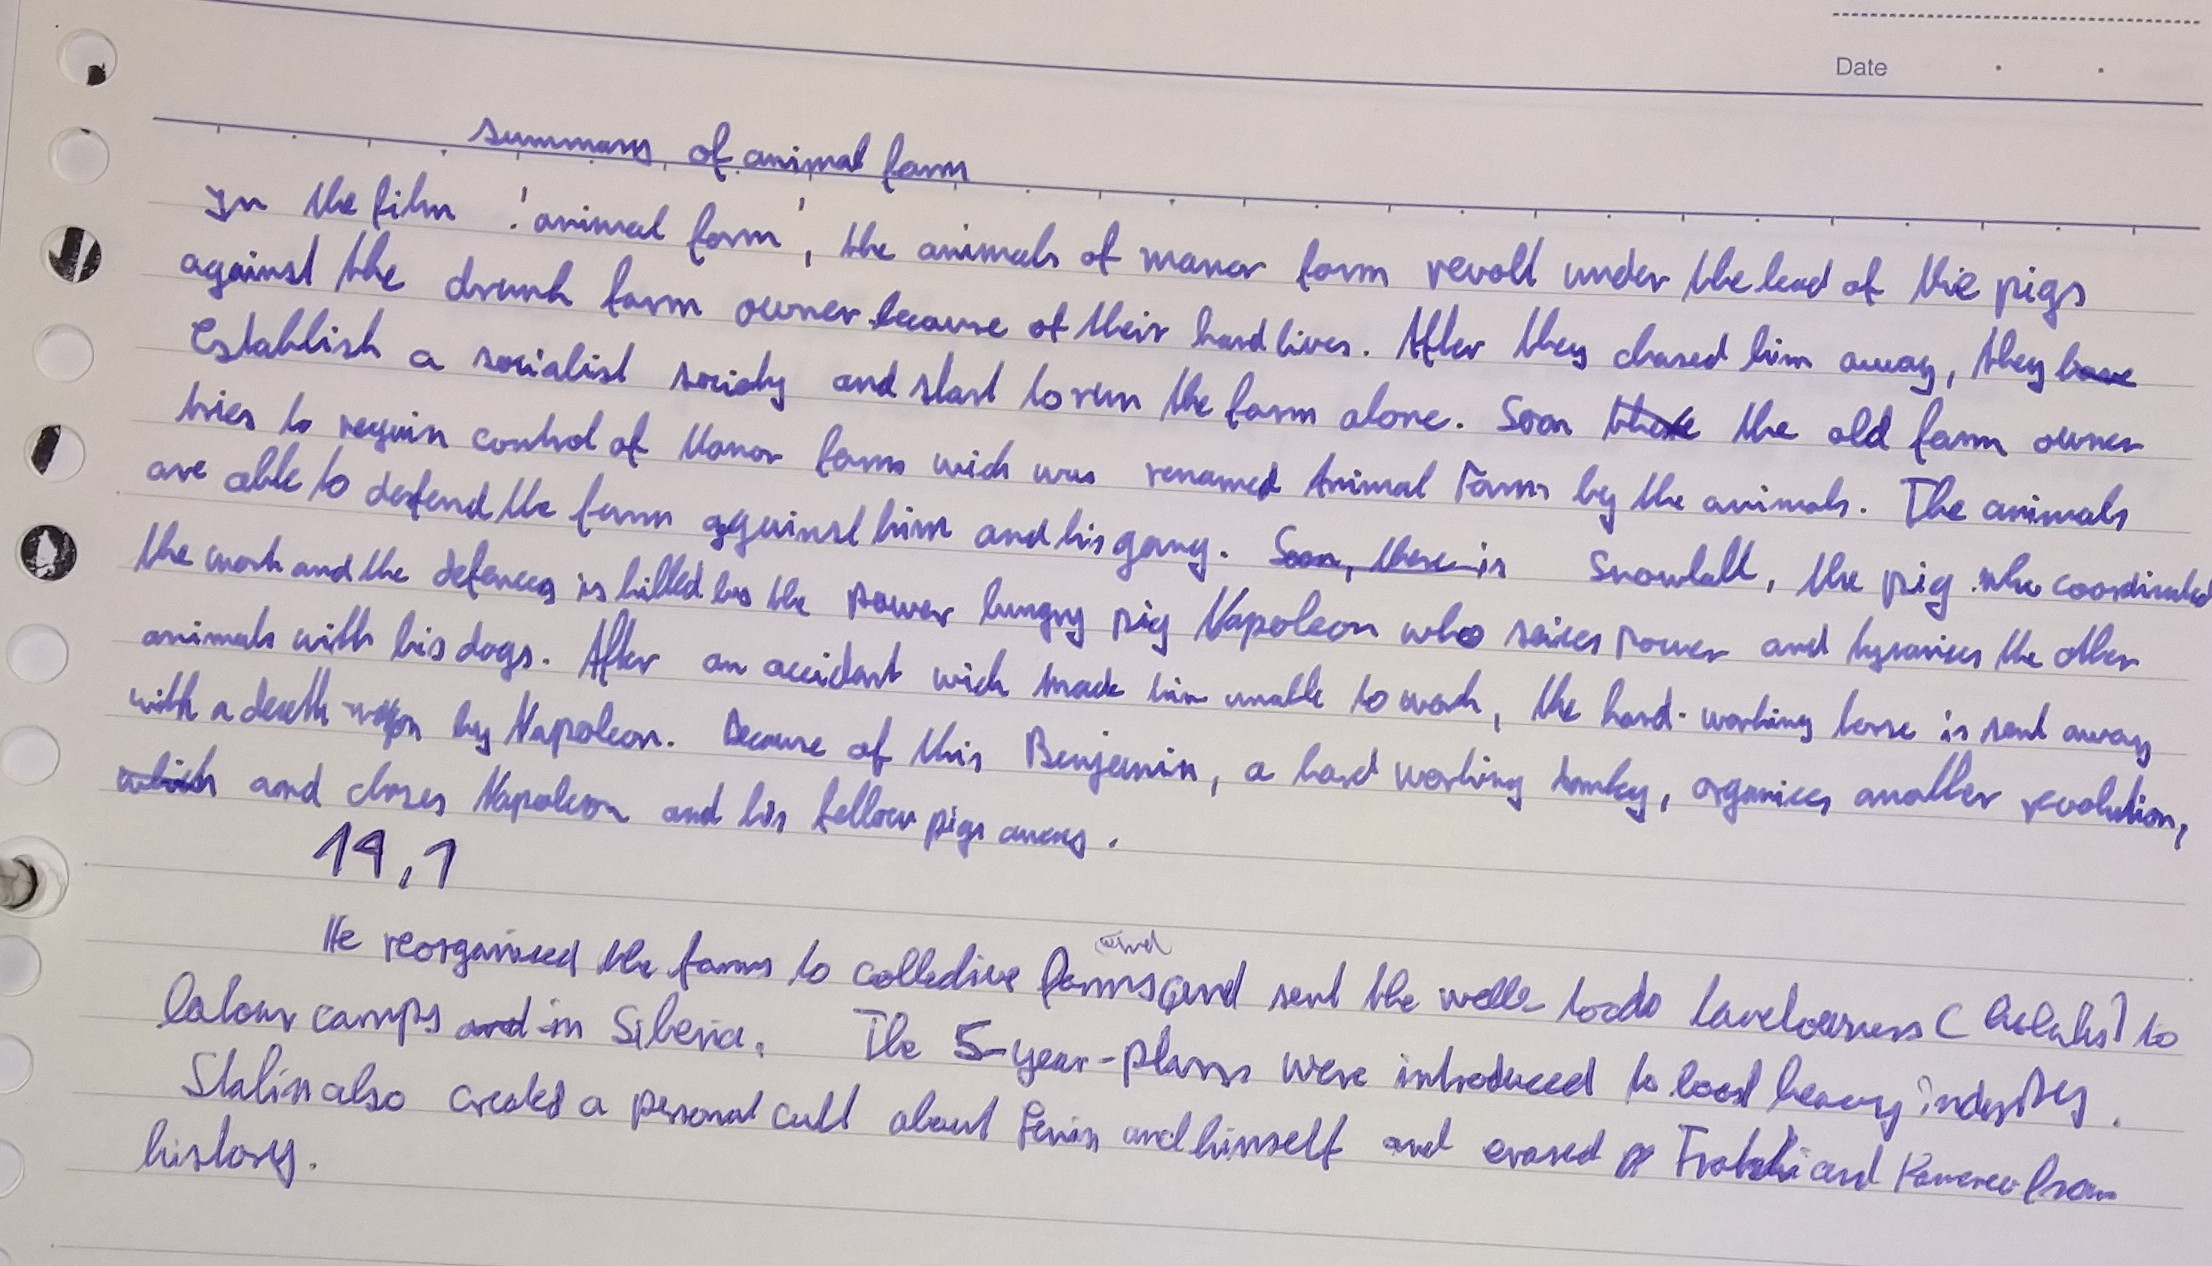 Date
summary of animal farm
In the film 'animal farm', the animals of manor farm revolt under the lead of the pigs
against the drunk farm owner because of their hard lives. After they chased him away, they have
establish a socialist society and start to run the farm alone. Soon the old farm owner
tries to regain control of Manor farm wich was renamed Animal Farm by the animals. The animals
are able to defend the farm against him and his gang. Soon, there is Snowball, the pig who coordinated
the work and the defences is killed by the power hungry pig Napoleon who seizes power and tyranises the other
animals with his dogs. After an accident wich made him unable to work, the hard-working horse is sent away
with a death by Napoleon. Because of this Benjamin, a hard working donkey, organises another revolution,
which and chases Napoleon and his fellow pigs away.
19,1
He reorganised the farms to collective farms and and sent the welle to do landowners (Kulaks) to
labour camps and in Siberia. The 5-year-plans were introduced to boost heavy industry.
Stalin also created a personal cult about Lenin and himself and erased Trotzki and Kamenev from
history.